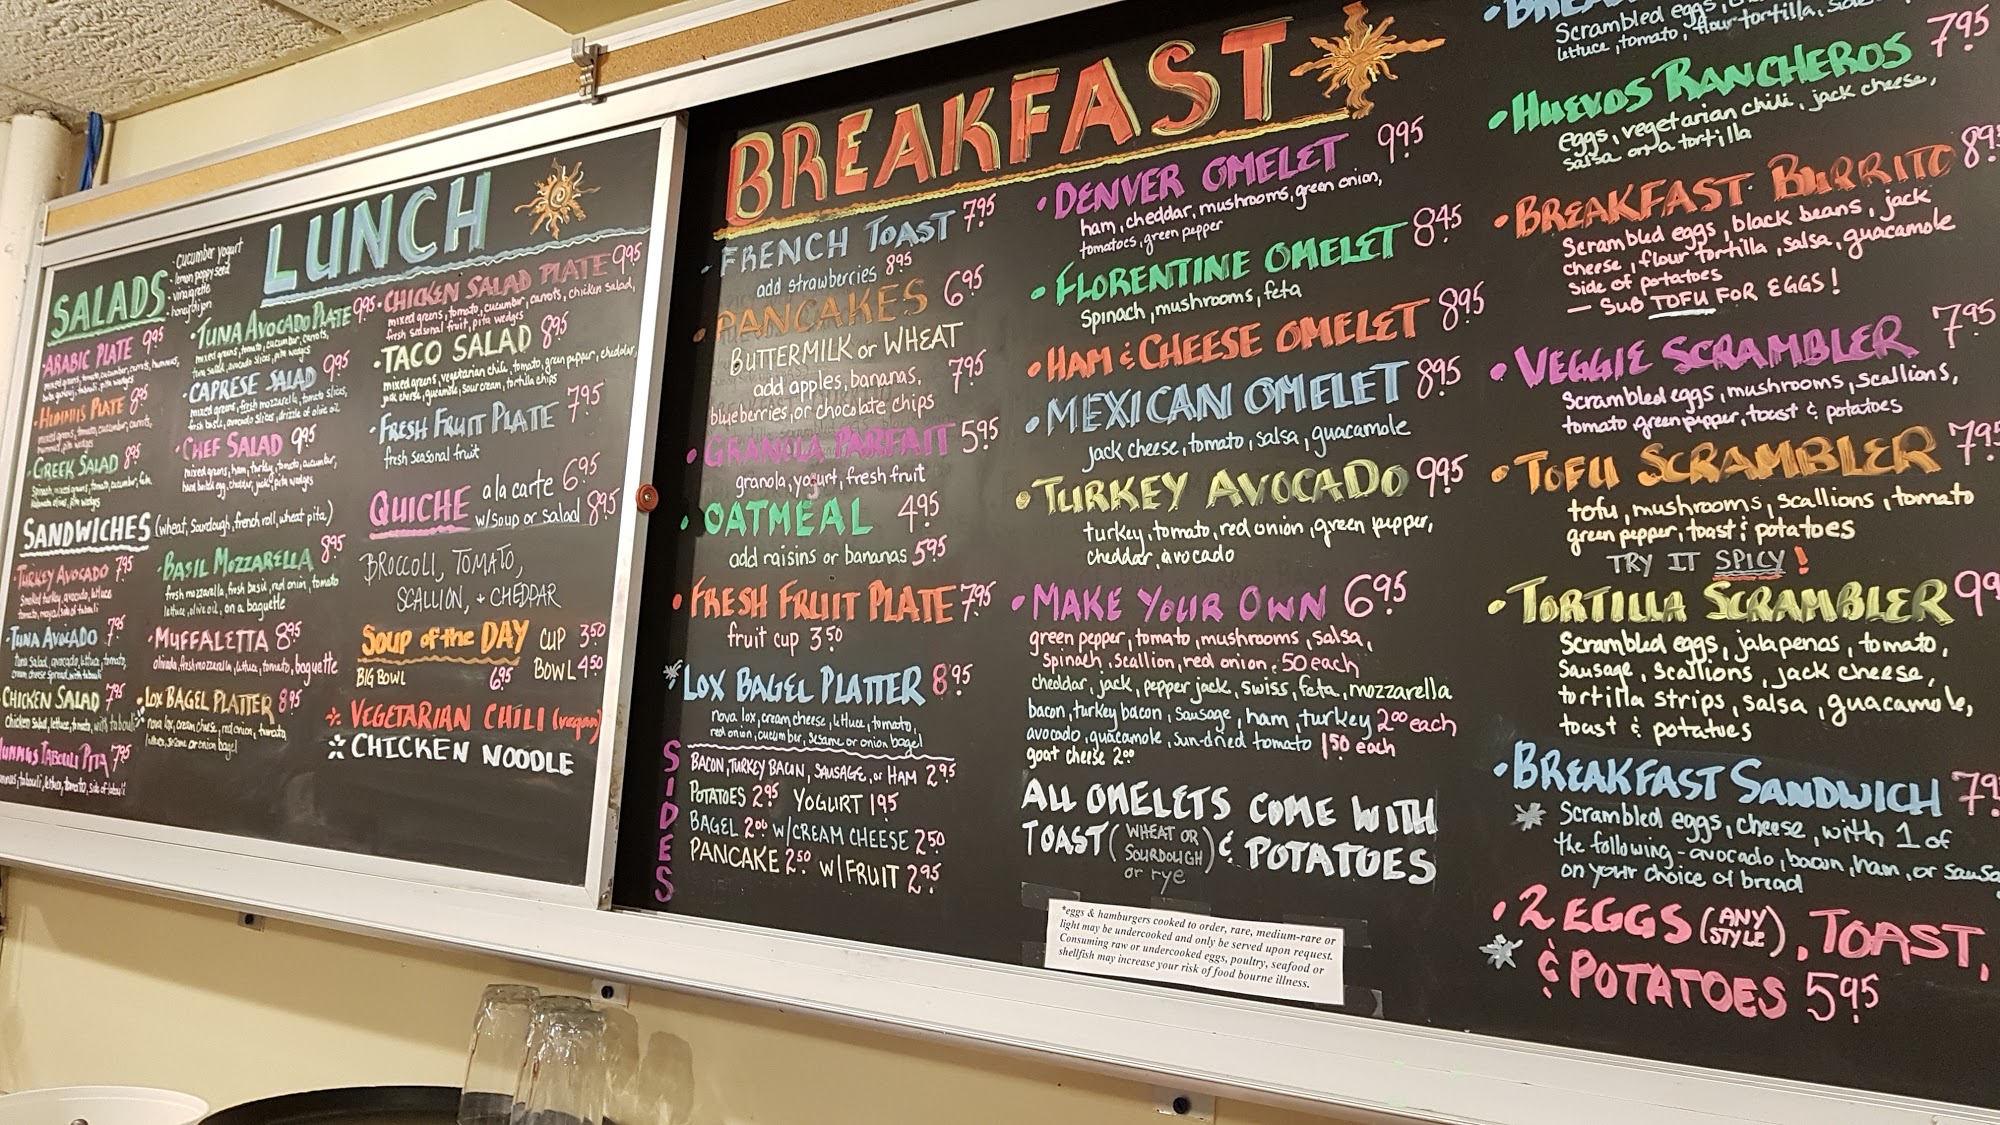 LUNCH
SALADS
- cucumber yogurt
- lemon poppy seed
- vinaigrette
- honey dijon
• ARABIC PLATE 9.95
mixed greens, tomato, cucumber, carrots, hummus,
baba ganouj, tabouli, pita wedges
• HUMMUS PLATE 8.95
mixed greens, tomato, cucumber, carrots,
hummus, pita wedges
• GREEK SALAD 8.95
Spinach, mixed greens, tomato, cucumber, feta,
kalamata olives, pita wedges
• TUNA AVOCADO PLATE 9.95
mixed greens, tomato, cucumber, carrots,
tuna salad, avocado slices, pita wedges
• CAPRESE SALAD 9.95
mixed greens, fresh mozzarella, tomato slices,
fresh basil, avocado slices, drizzle of olive oil
• CHEF SALAD 9.95
mixed greens, ham, turkey, tomato, cucumber,
hard boiled egg, cheddar, jack, pita wedges
• CHICKEN SALAD PLATE 9.95
mixed greens, tomato, cucumber, carrots, chicken salad,
fresh seasonal fruit, pita wedges
• TACO SALAD 8.95
mixed greens, vegetarian chili, tomato, green pepper, cheddar,
jack cheese, guacamole, sour cream, tortilla chips
• FRESH FRUIT PLATE 7.95
fresh seasonal fruit
SANDWICHES (wheat, sourdough, french roll, wheat pita)
• TURKEY AVOCADO 7.95
Smoked turkey, avocado, lettuce
tomato, mayo/side of tabouli
• TUNA AVOCADO 7.95
tuna salad, avocado, lettuce, tomato,
cream cheese spread, with tabouli
CHICKEN SALAD 7.95
chicken salad, lettuce, tomato, with tabouli
HUMMUS TABOULI PITA 7.95
hummus, tabouli, lettuce, tomato, side of tabouli
• BASIL MOZZARELLA 8.95
fresh mozzarella, fresh basil, red onion, tomato
lettuce, olive oil, on a baguette
• MUFFALETTA 8.95
olivada, fresh mozzarella, lettuce, tomato, baguette
* LOX BAGEL PLATTER 8.95
nova lox, cream cheese, red onion, tomato,
lettuce, sesame or onion bagel
QUICHE a la carte 6.95
w/soup or salad 8.95
BROCCOLI, TOMATO,
SCALLION, + CHEDDAR
SOUP of the DAY CUP 3.50
BIG BOWL 6.95 BOWL 4.50
VEGETARIAN CHILI (vegan)
CHICKEN NOODLE
BREAKFAST
• FRENCH TOAST 7.95
add strawberries 8.95
• PANCAKES 6.95
BUTTERMILK or WHEAT
add apples, bananas, 7.95
blueberries, or chocolate chips
• GRANOLA PARFAIT 5.95
granola, yogurt, fresh fruit
• OATMEAL 4.95
add raisins or bananas 5.95
• FRESH FRUIT PLATE 7.95
fruit cup 3.50
* LOX BAGEL PLATTER 8.95
nova lox, cream cheese, lettuce, tomato,
red onion, cucumber, sesame or onion bagel
SIDES
BACON, TURKEY BACON, SAUSAGE, or HAM 2.95
POTATOES 2.95 YOGURT 1.95
BAGEL 2.00 w/CREAM CHEESE 2.50
PANCAKE 2.50 w/FRUIT 2.95
• DENVER OMELET 9.95
ham, cheddar, mushrooms, green onion,
tomatoes, green pepper
• FLORENTINE OMELET 8.45
Spinach, mushrooms, feta
• HAM & CHEESE OMELET 8.95
• MEXICAN OMELET 8.95
jack cheese, tomato, salsa, guacamole
• TURKEY AVOCADO 9.95
turkey, tomato, red onion, green pepper,
cheddar, avocado
• MAKE YOUR OWN 6.95
green pepper, tomato, mushrooms, salsa,
spinach, scallion, red onion .50 each
cheddar, jack, pepper jack, swiss, feta, mozzarella
bacon, turkey bacon, sausage, ham, turkey 2.00 each
avocado, guacamole, sun-dried tomato 1.50 each
goat cheese 2.00
ALL OMELETS COME WITH
TOAST (WHEAT OR SOURDOUGH or rye) & POTATOES
*eggs & hamburgers cooked to order, rare, medium-rare or
light may be undercooked and only be served upon request.
Consuming raw or undercooked eggs, poultry, seafood or
shellfish may increase your risk of food bourne illness.
Scrambled eggs,
lettuce, tomato, flour tortilla,
• HUEVOS RANCHEROS 7.95
eggs, vegetarian chili, jack cheese,
salsa on a tortilla
• BREAKFAST BURRITO 8.95
Scrambled eggs, black beans, jack
cheese, flour tortilla, salsa, guacamole
side of potatoes
— SUB TOFU FOR EGGS!
• VEGGIE SCRAMBLER 7.95
Scrambled eggs, mushrooms, scallions,
tomato, green pepper, toast & potatoes
• TOFU SCRAMBLER 7.95
tofu, mushrooms, scallions, tomato
green pepper, toast & potatoes
TRY IT SPICY!
• TORTILLA SCRAMBLER 9.9
Scrambled eggs, jalapenos, tomato,
Sausage, scallions, jack cheese,
tortilla strips, salsa, guacamole,
toast & potatoes
• BREAKFAST SANDWICH 7.9
* Scrambled eggs, cheese, with 1 of
the following - avocado, bacon, ham, or sausa
on your choice of bread
• 2 EGGS (ANY STYLE), TOAST,
* & POTATOES 5.95